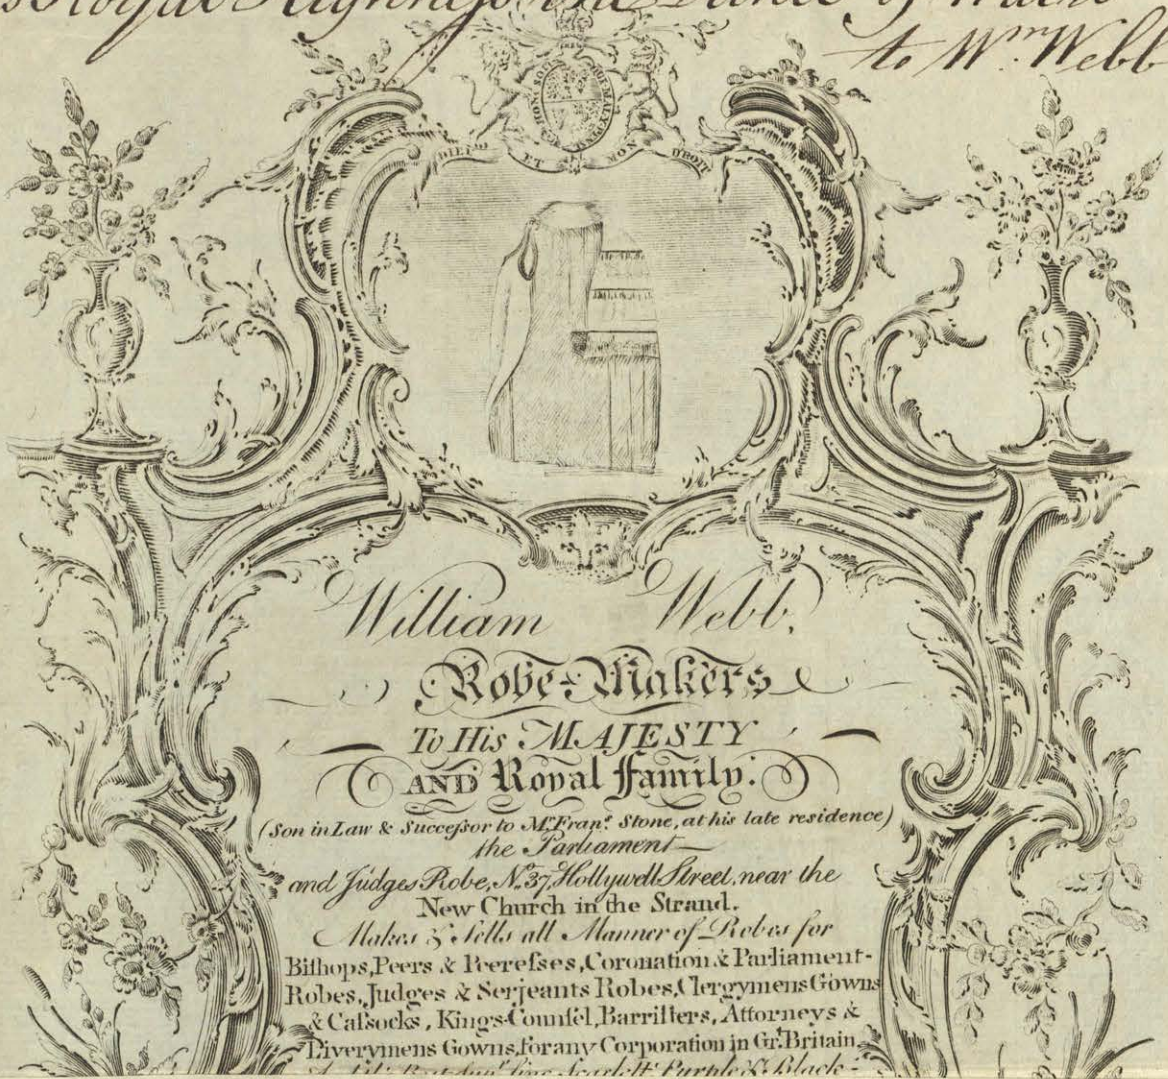 Royal Highness the of
to Wm. Webb
HONI SOIT QUI MAL Y PENSE
DIEU ET MON DROIT
William Webb,
Robe-Makers
To His MAJESTY
AND Royal Family.
(Son in Law & Succeſsor to Mr. Frans. Stone, at his late residence)
the Parliament—
and Judges Robe, No. 37, Hollywell Street, near the
New Church in the Strand.
Makes & Sells all Manner of Robes for
Biſhops, Peers & Peereſses, Coronation & Parliament-
Robes, Judges & Serjeants Robes, Clergymens Gowns
& Caſsocks, Kings-Counſel, Barriſters, Attorneys &
Liverymens Gowns, for any Corporation in Gt. Britain,
fine Scarlett Purple & Black-